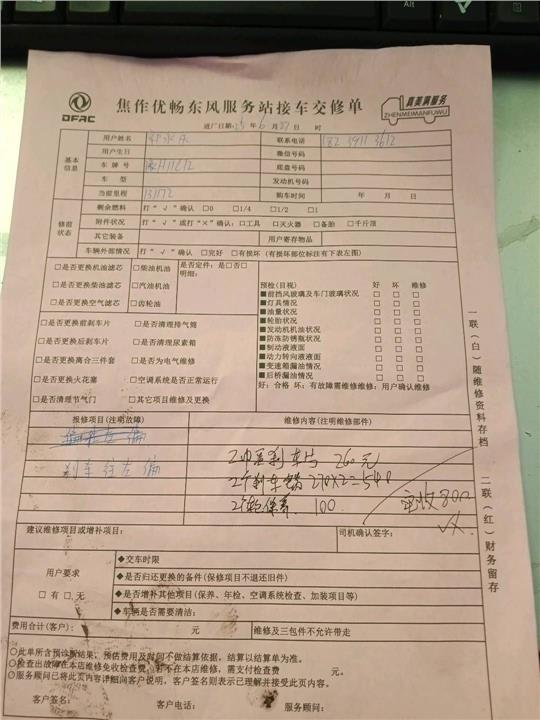 DFAC
焦作优畅东风服务站接车交修单
真美满服务
ZHENMEIMANFUWU
进厂日期: 年 月 日 时
基本信息
用户姓名 联系电话
用户生日 微信号码
车牌号 底盘号码
车 型 发动机号码
当前里程 131172 购车时间 年 月 日
修前状态
剩余燃料 打“√”确认 □0 □1/4 □1/2 □1
附件状况 打“√”或打“×”确认: □工具 □灭火器 □备胎 □千斤顶
其它装备 用户寄存物品
车辆外部情况 打“√”确认 □完好 □有损坏 (有损坏部位标注有下表左图)
□是否更换机油滤芯 □柴油机油 是否定件: 是□否□
□是否更换柴油滤芯 □汽油机油 明细:
□是否更换空气滤芯 □齿轮油
□是否更换前刹车片 □是否清理排气筒
□是否更换后刹车片 □是否清理尿素箱
□是否更换离合三件套 □是否为电气维修
□是否更换火花塞 □空调系统是否正常运行
□是否清理节气门 □其它项目维修及更换
预检(目视) 好 坏 维修
■前挡风玻璃及车门玻璃状况 □ □ □
■灯具情况 □ □ □
■油量状况 □ □ □
■轮胎状况 □ □ □
■发动机机油状况 □ □ □
■防冻防锈瓶状况 □ □ □
■制动液液面 □ □ □
■动力转向液液面 □ □ □
■变速箱漏油情况 □ □ □
■后桥漏油情况 □ □ □
好: 合格 坏: 有故障需维修维修: 用户确认维修
报修项目(注明故障) 维修内容(注明维修部件)
刹车往左偏
刹车片 260元
2个刹车 270×2=540
2个轮保养 100
实收800
建议维修项目或增补项目: 司机确认签字:
用户要求
□有 □无
◆交车时限
◆是否归还更换的备件(保修项目不退还旧件)
◆是否增补其他项目(保养、年检、空调系统检查、加装项目等)
◆车辆是否需要清洁:
费用合计(客户): 元 维修及三包件不允许带走
○此单所含预诊断结果, 预估费用及时间不做结算依据, 结算以结算单为准。
○检查出故障在本店维修免收检查费, 若不在本店维修, 需支付检查费 元。
○服务顾问已将此页内容详细向客户说明, 客户签名则表示已理解并接受此页内容。
客户签名: 客户电话: 服务顾问:
一联(白)随维修资料存档
二联(红)财务留存